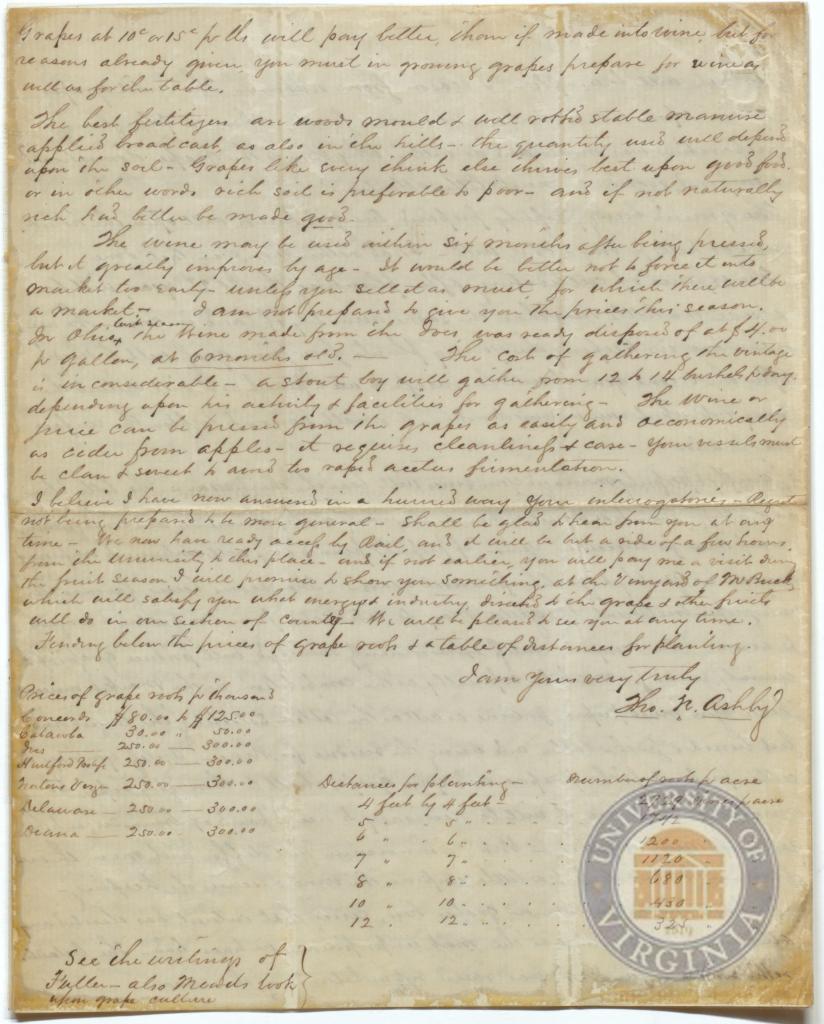 Grapes at 10c or 15c pr lb will pay better, than if made into wine, but for
reasons already given, you must in growing grapes prepare for wine as
well as for the table.
The best fertilizers are woods mould & well rotted stable manure
applied broadcast, as also in the hills - the quantity used will depend
upon the soil - Grapes like every think else thrives best upon good food.
or in other words rich soil is preferable to poor - and if not naturally
rich had better be made good.
The wine may be used within six months after being pressed,
but it greatly improves by age - It would be better not to force it into
market too early - unless you sell it as must, for which there will be
a market. - I am not prepared to give you the prices this season.
In Ohio last season the Wine made from the Ives was ready disposed of at $4.00
pr gallon, at 6 months old. - The cost of gathering the vintage
is inconsiderable - a stout boy will gather from 12 to 14 bushels pr day.
depending upon his activity & facilities for gathering - The Wine or
juice can be pressed from the grapes as easily and oeconomically
as cider from apples - it requires cleanliness & care - Your vessels must
be clean & sweet to avoid too rapid acetus firmentation.
I believe I have now answered in a hurried way your interrogatories - Regret
not being prepared to be more general - shall be glad to hear from you at any
time - We now have ready access by Rail, and it will be but a ride of a few hours,
from the University to this place - and if not earlier, you will pay me a visit during
the fruit season I will promise to show you something, at the Vinyard of Mr Buck
which will satisfy you what energy & industry, directed to the grape & other fruits
will do in our section of county - We will be pleased to see you at any time.
Finding below the prices of grape roots & a table of distances for planting.
I am Yours very truly
Tho. N. Ashby
Prices of grape roots pr thousand
Concords $80.00 to $125.00
Catawba 30.00 " 50.00
Ives 250.00 - 300.00
Hartford Prolif. 250.00 - 300.00
Nortons Virga 250.00 - 300.00
Delaware - 250.00 - 300.00
Diana - 250.00 - 300.00
Distances for planting - number of roots pr acre
4 feet by 4 feet - pr acre
5 " 5 "
6 " 6 " 1200 "
7 " 7 " 1120 "
8 " 8 " 680 "
10 " 10 "
12 " 12 "
See the writings of
Fuller - also Meads book
upon grape culture
UNIVERSITY OF
VIRGINIA